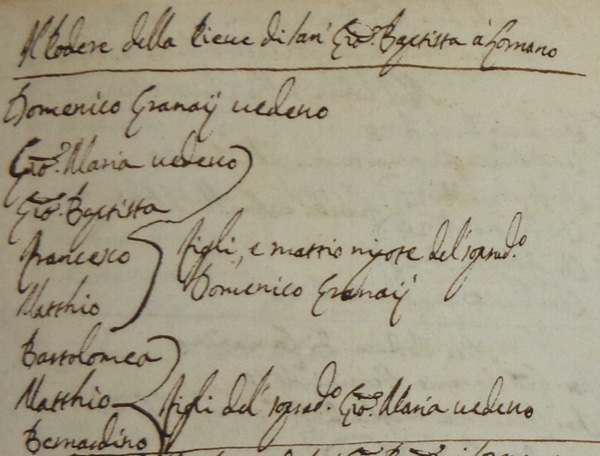 Al Podere della Pieve di San Gio: Battista à Cornano
Domenico Granaij vedovo
Gio: Maria vedovo
Gio: Battista
Francesco
Matthio
figli, e mattio nipote del soprad.o
Domenico Granaij
Bartolomea
Matthio
Bernardino
figli del soprad.o Gio: Maria vedovo